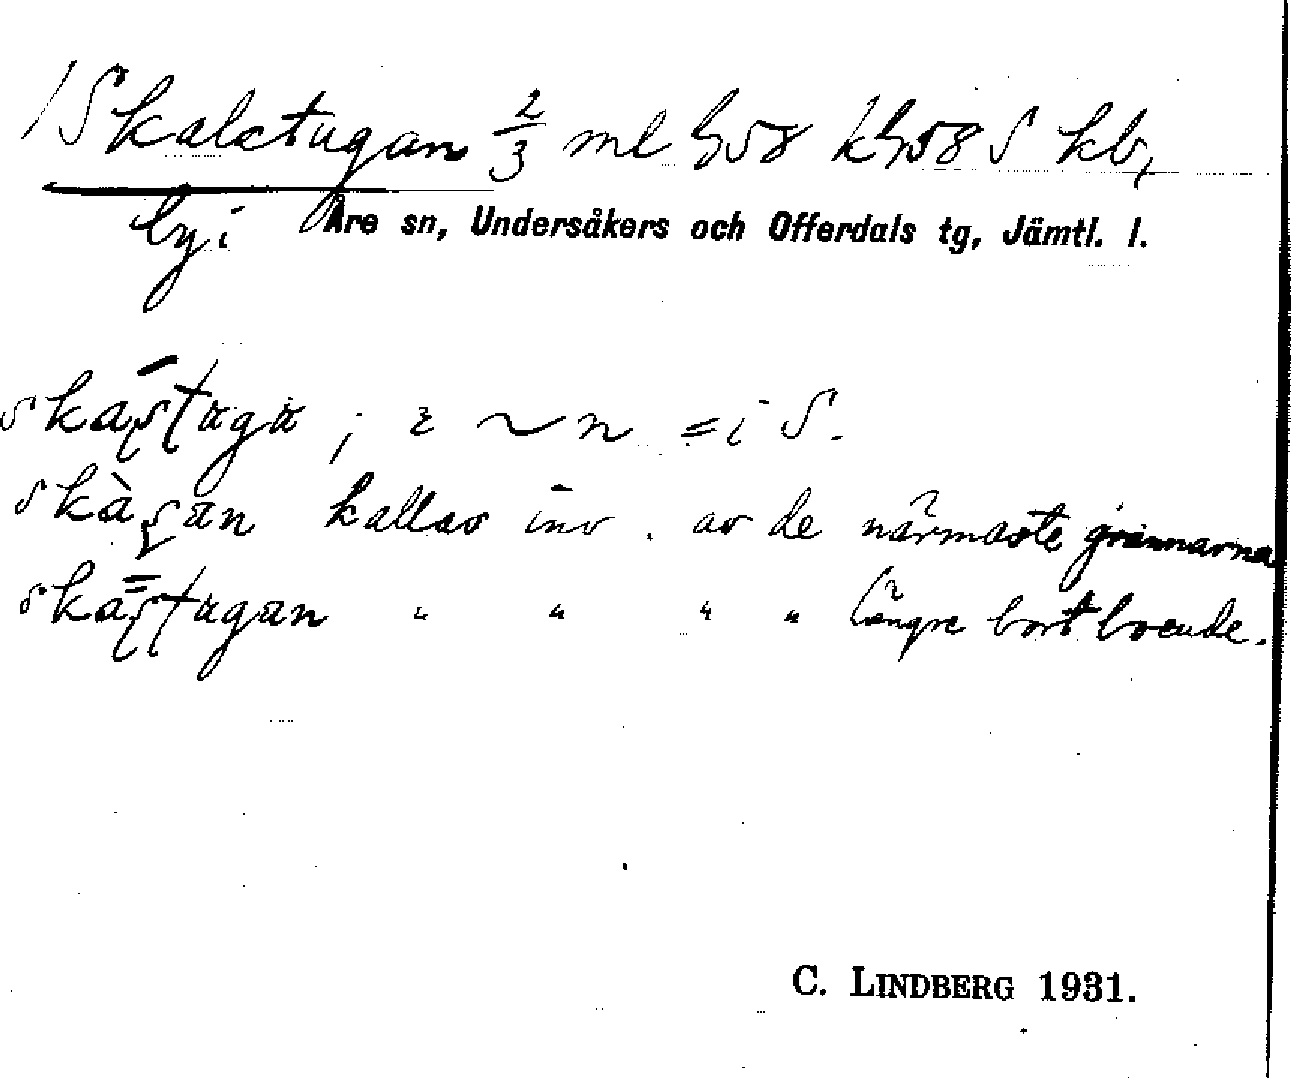 1 Skalstugan 2/3 ml h58 kh58 S kb,
by i Åre sn, Undersåkers och Offerdals tg, Jämtl. l.
; ~ n = i S.
kallas inv. av de närmaste grannarna
" " " " längre bort boende.
C. LINDBERG 1931.